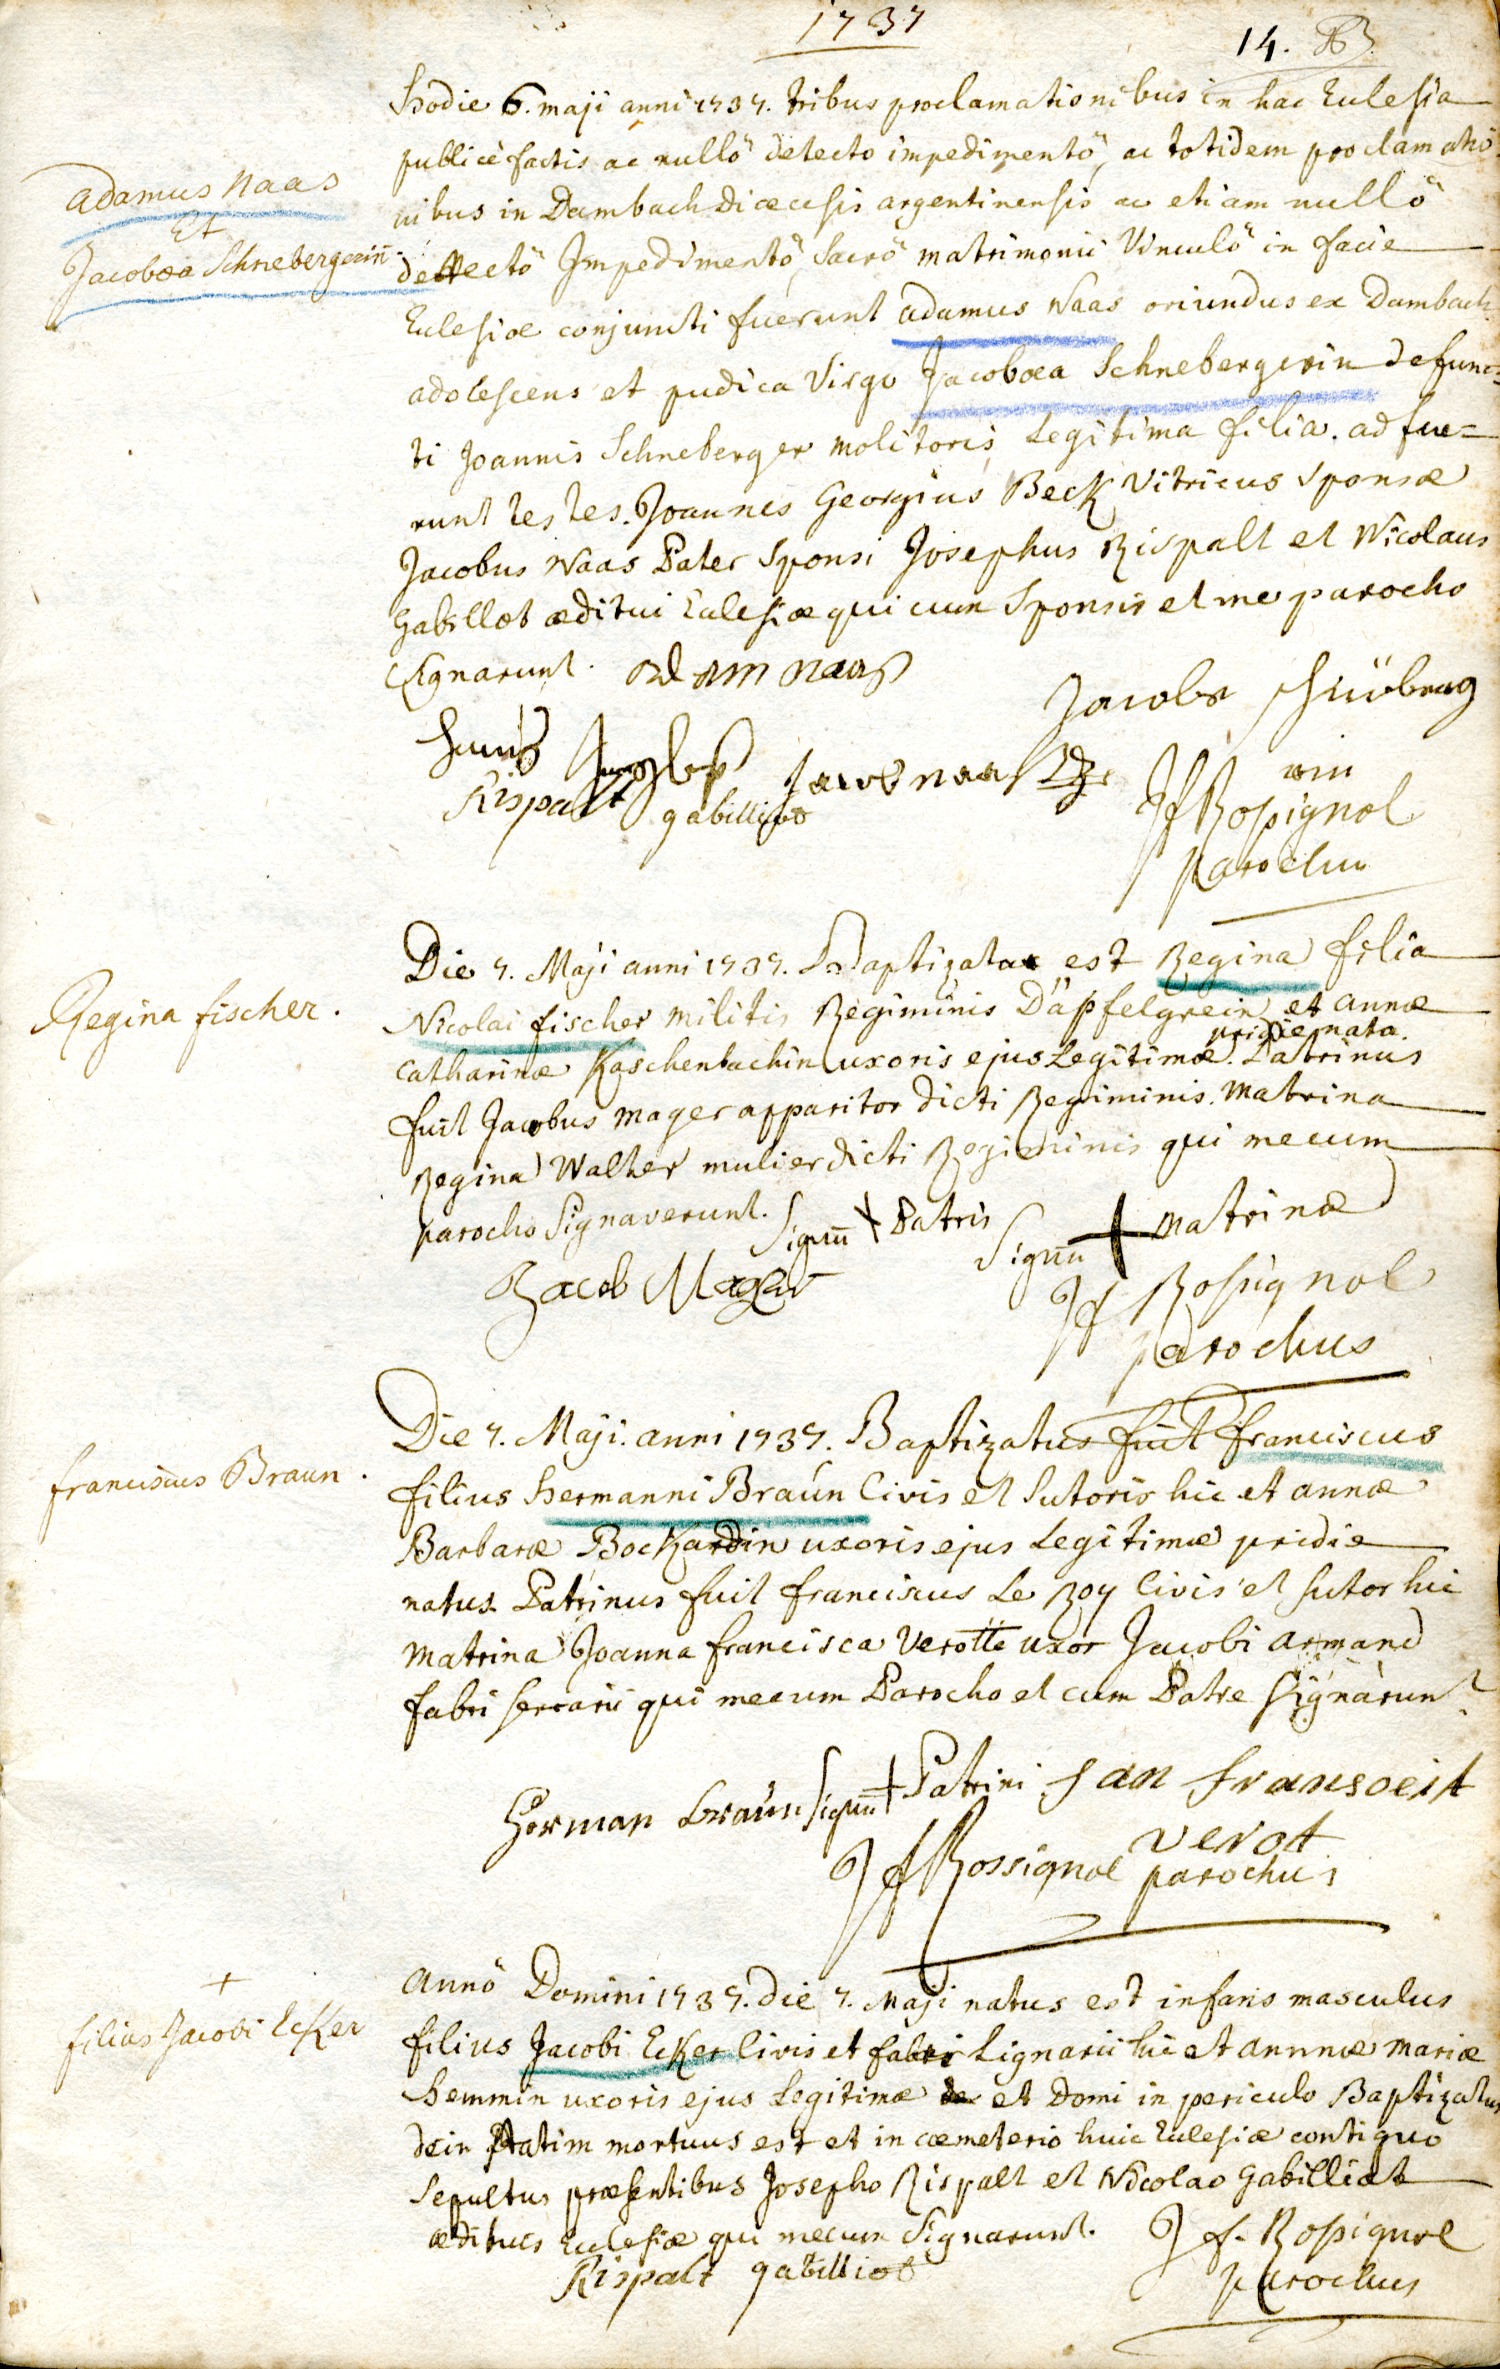 1737
14.
Hodie 6. maji anni 1737. tribus proclamationibus in hac Eulesia
publicè factis ac nullô detecto impedimentô, ac totidem proclamatio=
nibus in Dambach diœcesis argentinensis ac etiam nullô
adamus Naas
Et
Jacobœa Schnebergerin
dettectô Impedimentô, Sacrô matrimonii Vinculô in facie
Eulesiæ conjuncti fuerunt adamus Naas oriundus ex Dambach
adolescens et pudica Virgo Jacobœa Schnebergerin defunc=
ti Joannis Schneberger molitoris Legitima filia. adfue=
runt testes. Joannes Georgius Beck Vitricus Sponsæ
Jacobus Naas Pater Sponsi Josephus Rispalt et Nicolaus
Gabillot æditui Eulesiæ qui cum Sponsis et me parocho
Signarunt. adam naas
Rispalt gabilliot Jacob naas
Jf Rossignol
parochus
Die 7. Maji anni 1737. Baptizata est Regina filia
Regina fischer.
Nicolai fischer militis Regiminis Däpfelgrein et annæ
pridie nata.
Catharinæ Kaschenbachin uxoris ejus Legitimæ. Patrinus
fuit Jacobus mager apparitor dicti Regiminis. Matrina
Regina Walher mulier dicti Regiminis qui mecum
parocho Signaverunt. Signū + Patris Signū + Matrinæ
Jacob Mager
Jf Rossignol
parochus
Die 7. Maji. anni 1737. Baptizatus fuit franciscus
franciscus Braun.
filius Hermanni Braun Civis et Sutoris hic et annæ
Barbaræ Bockardin uxoris ejus Legitimæ pridie
natus. Patrinus fuit franciscus Le Roy Civis et Sutor hic
Matrina Joanna francisca Verotte uxor Jacobi armand
fabri serrarii qui mecum Parocho et cum Patre Signarunt.
Herman Braun Signū + Patrini Jan fransoeist
verot
Jf Rossignol parochus
+
filius Jacobi Ecker
annô Domini 1737. die 7. Maji natus est infans masculus
filius Jacobi Ecker Civis et fabri Lignarii hic et annnæ Mariæ
Hemmin uxoris ejus Legitimæ et Domi in periculo Baptizatus
dein statim mortuus est et in cœmeterio huic Eulesiæ contiguo
Sepultus præsentibus Josepho Rispalt et Nicolao Gabilliot
ædituis Eulesiæ qui mecum Signarunt.
Rispalt gabilliot
J f. Rossignol
parochus